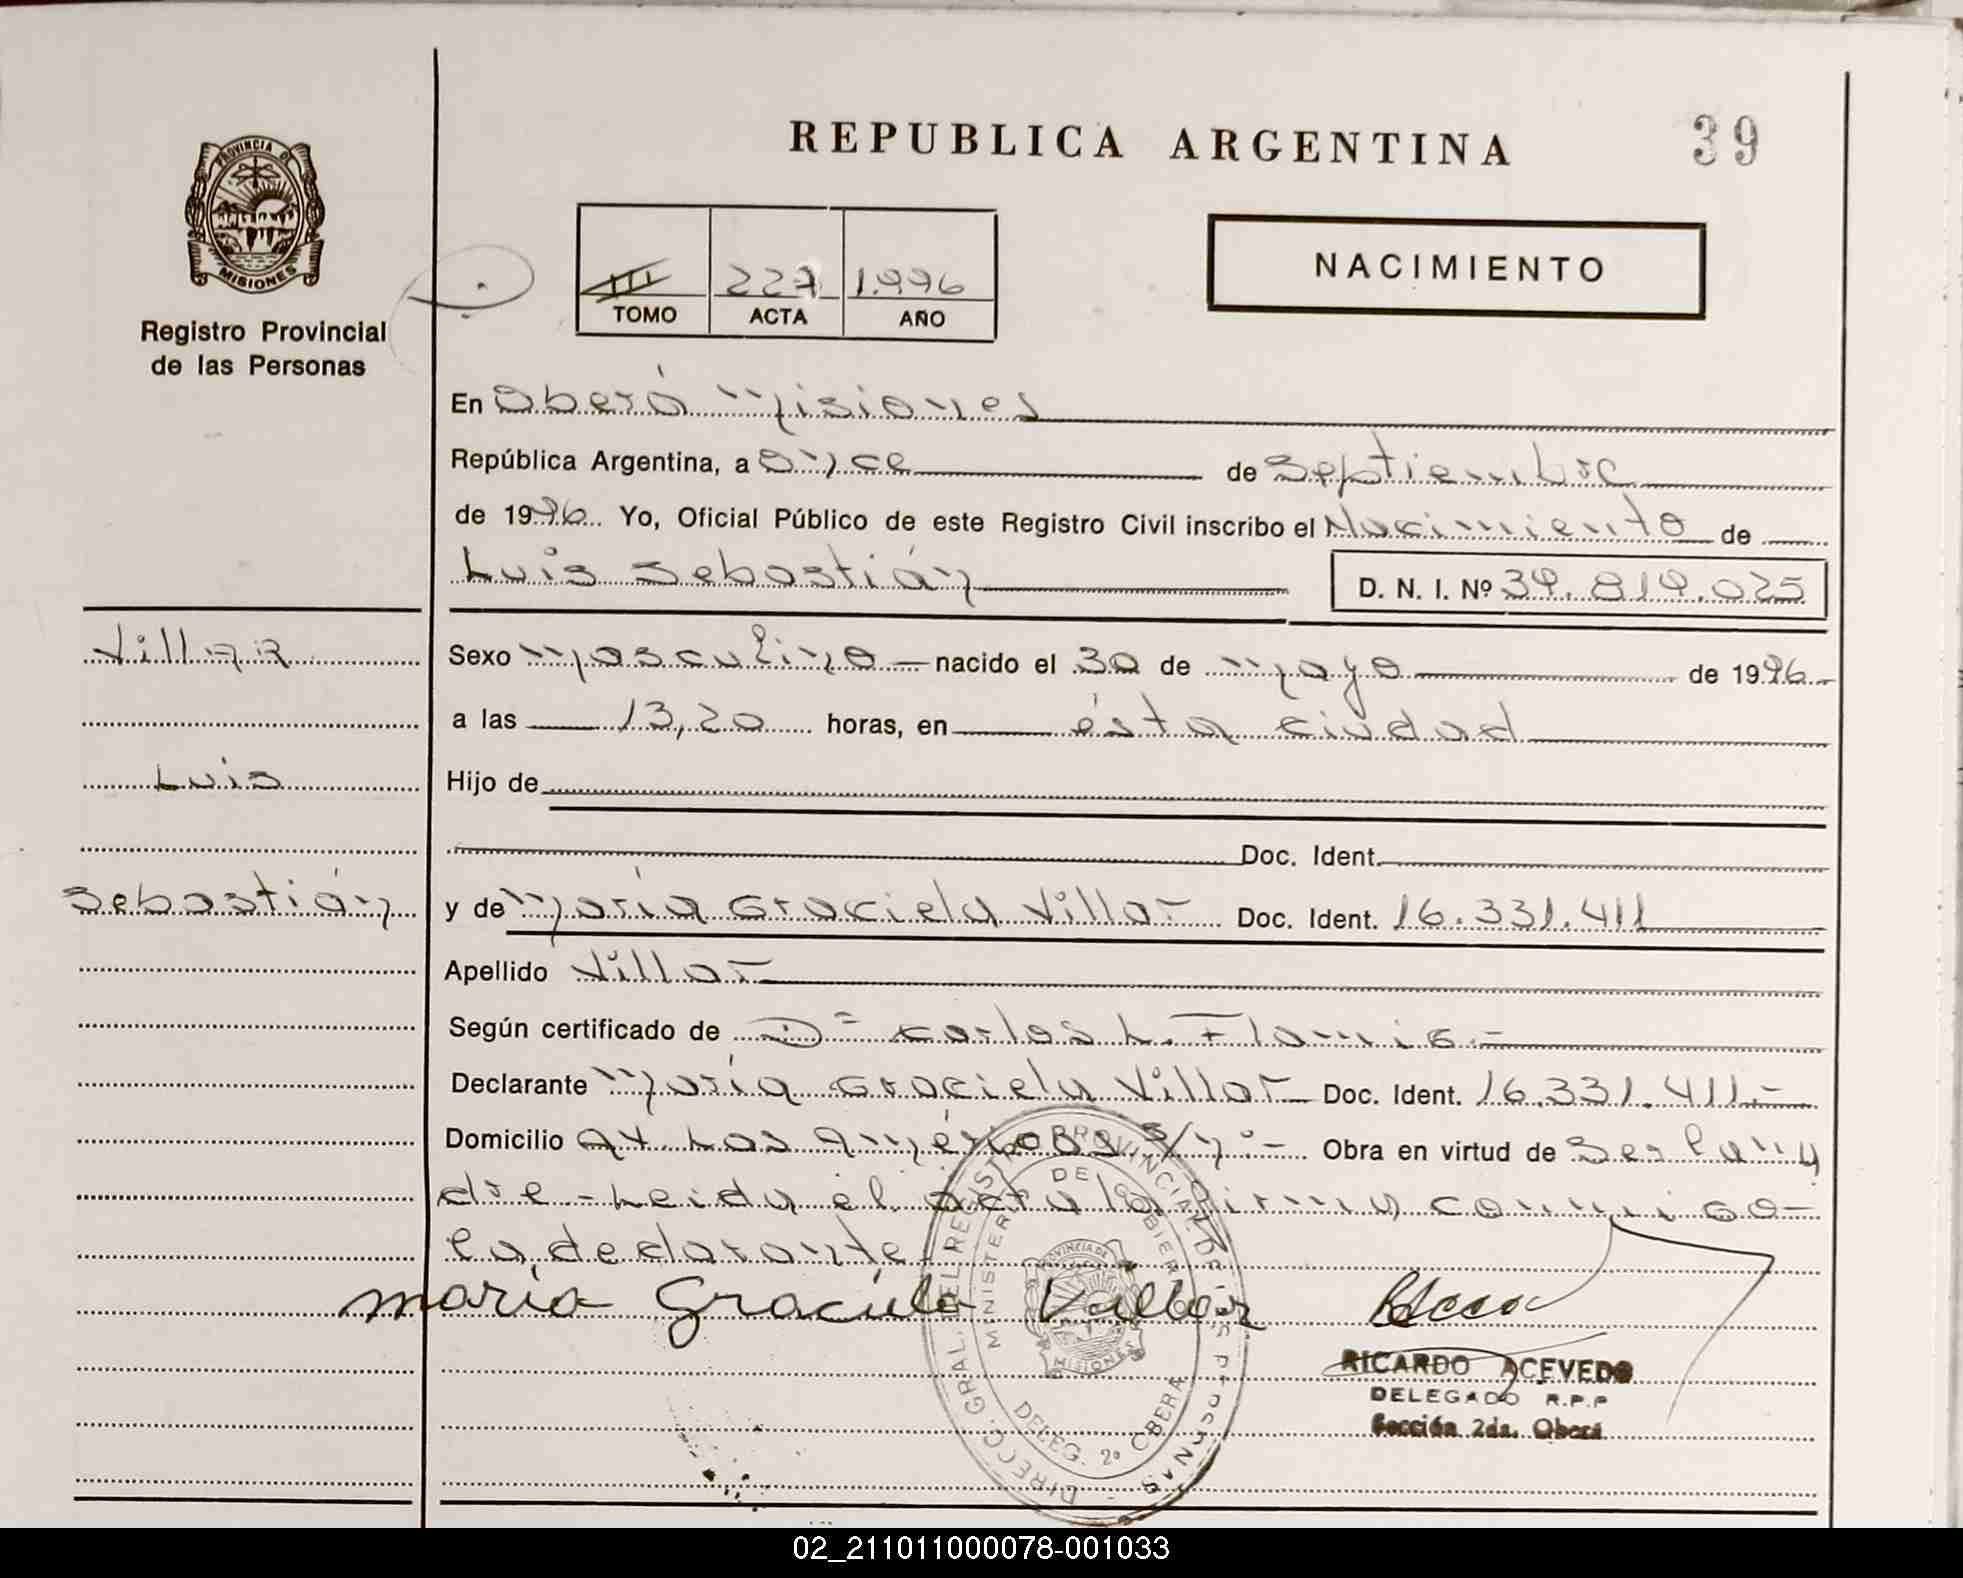 REPUBLICA ARGENTINA
39
PROVINCIA DE
MISIONES
Registro Provincial
de las Personas
III 227 1.996
TOMO ACTA AÑO
NACIMIENTO
En Oberá Misiones
República Argentina, a Once de Septiembre
de 1996. Yo, Oficial Público de este Registro Civil inscribo el Nacimiento de
Luis Sebastián
D. N. I. Nº 39.819.025
Villar
Luis
Sebastián
Sexo masculino nacido el 30 de mayo de 1996
a las 13,20 horas, en ésta ciudad
Hijo de
Doc. Ident.
y de María Graciela Villar Doc. Ident. 16.331.411
Apellido Villar
Según certificado de Carlos L. Flamig
Declarante María Graciela Villar Doc. Ident. 16.331.411.-
Domicilio Av. Las Américas s/n:- Obra en virtud de Ser la ma
dre - Leida el acta la firma conmigo-
la declarante.
María Graciela Villar
RICARDO ACEVEDO
DELEGADO R.P.P
Sección 2da. Oberá
DIRECC. GRAL. DEL REGISTRO PROVINCIAL DE LAS PERSONAS
MINISTERIO DE GOBIERNO
PROVINCIA DE
MISIONES
DELEG. 2º OBERA
02_211011000078-001033